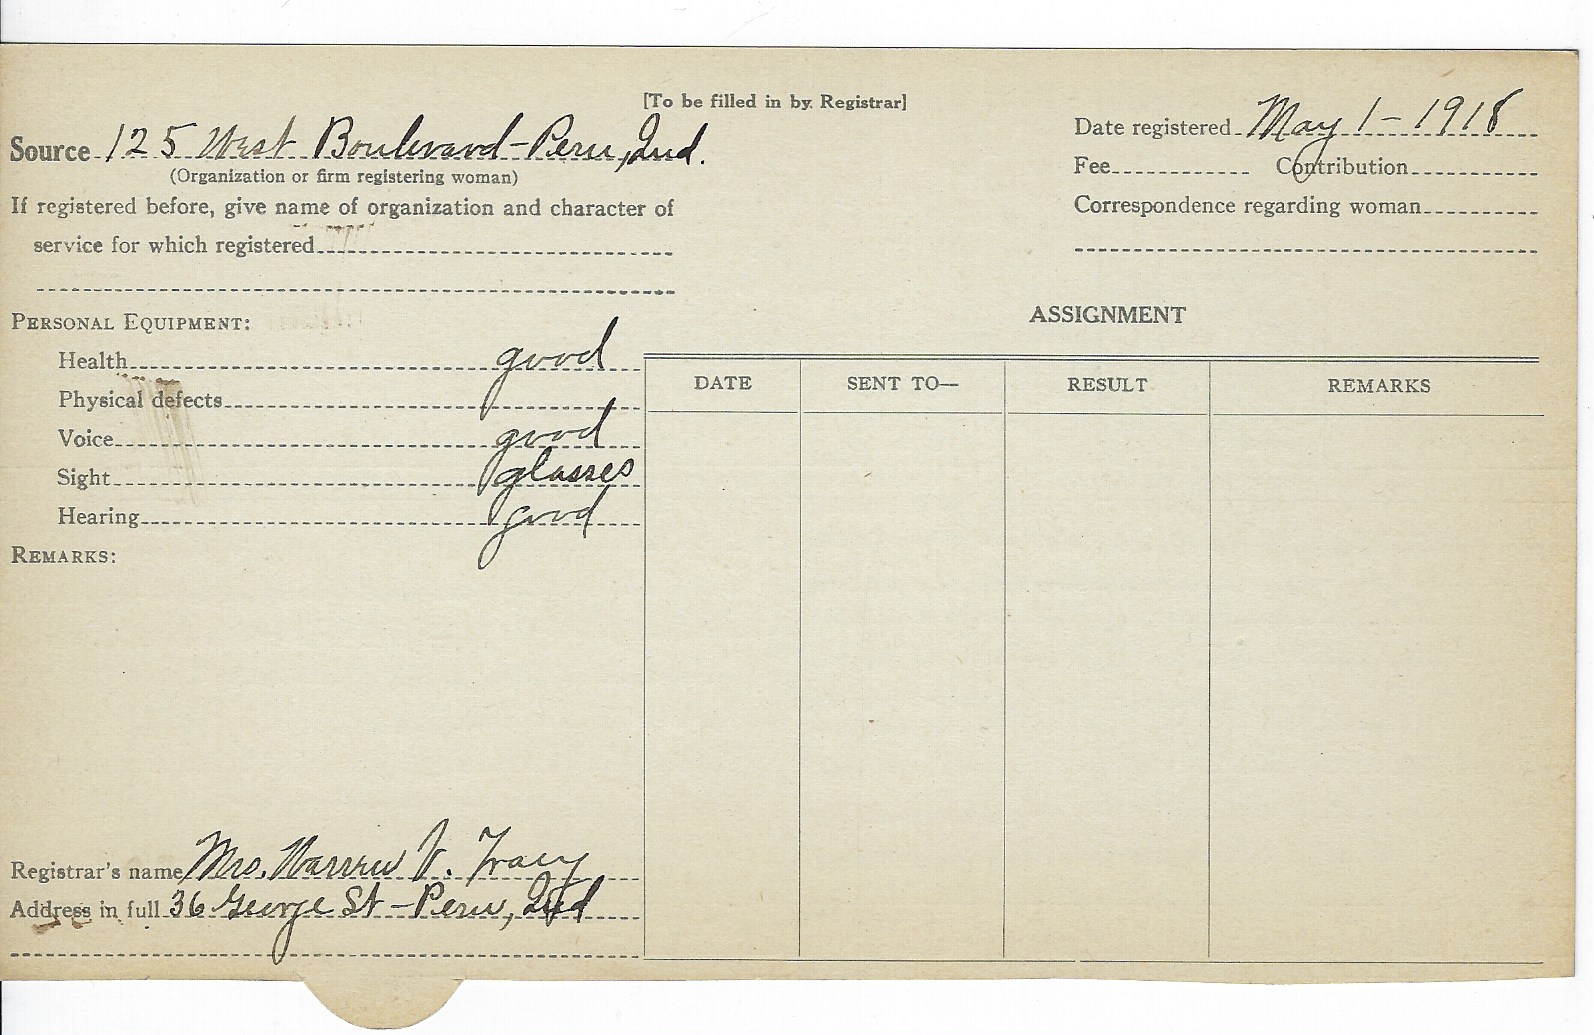 [To be filled in by Registrar]
Source 125 West Boulevard - Peru, Ind.
(Organization or firm registering woman)
If registered before, give name of organization and character of
service for which registered
Date registered May 1 - 1918
Fee Contribution
Correspondence regarding woman
PERSONAL EQUIPMENT:
Health good
Physical defects
Voice good
Sight glasses
Hearing good
REMARKS:
ASSIGNMENT
DATE SENT TO— RESULT REMARKS
Registrar's name Mrs. Warren V. Tracy
Address in full 36 George St - Peru, Ind